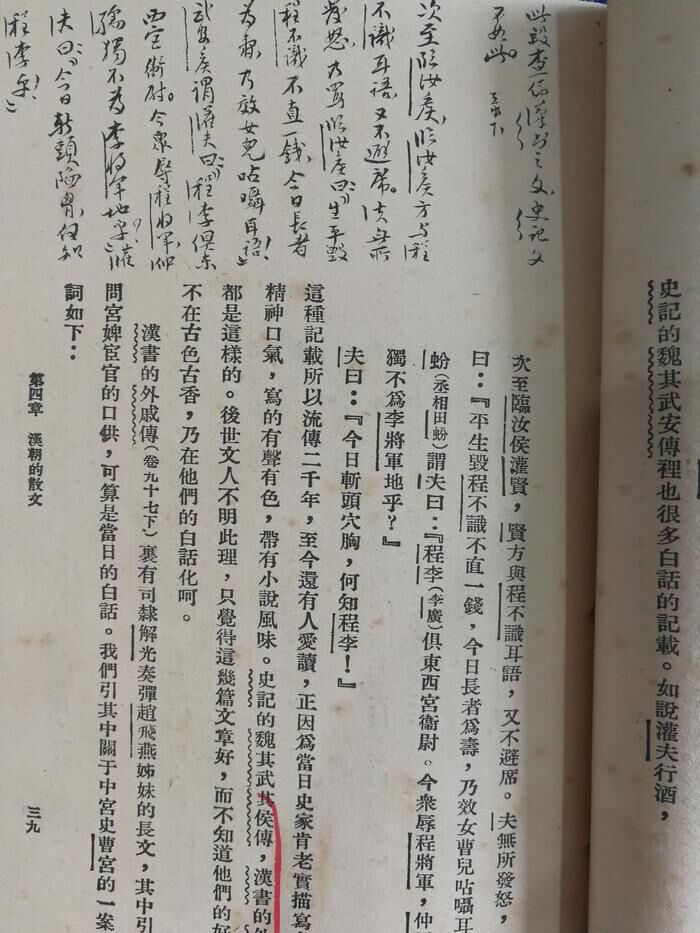 史記的魏其武安傳裡也很多白話的記載。如說灌夫行酒,
此段查係漢書之文,史記文
不如此。
次至臨汝侯,臨汝侯方与程
不識耳語,又不避席。夫無所
發怒,乃罵臨汝侯曰:“生平毀
程不識不直一錢,今日長者
為壽,乃效女兒呫囁耳語!”
武安侯謂灌夫曰:“程李俱東
西宮衛尉。今眾辱程將軍,仲
孺獨不為李將軍地乎?”灌
夫曰:“今日斬頭陷胷,何知
程李乎!”
次至臨汝侯灌賢,賢方與程不識耳語,又不避席。夫無所發怒,
曰:『平生毀程不識不直一錢,今日長者爲壽,乃效女曹兒呫囁耳
蚡(丞相田蚡)謂夫曰:『程李(李廣)俱東西宮衞尉。今衆辱程將軍,仲
獨不爲李將軍地乎?』
夫曰:『今日斬頭穴胸,何知程李!』
這種記載所以流傳二千年,至今還有人愛讀,正因爲當日史家肯老實描寫
精神口氣,寫的有聲有色,帶有小說風味。史記的魏其武侯傳,漢書的外
都是這樣的。後世文人不明此理,只覺得這幾篇文章好,而不知道他們的好
不在古色古香,乃在他們的白話化呵。
漢書的外戚傳(卷九十七下)裏有司隸解光奏彈趙飛燕姊妹的長文,其中引
問宮婢宦官的口供,可算是當日的白話。我們引其中關于中宮史曹宮的一案
詞如下:
第四章 漢朝的散文
三九